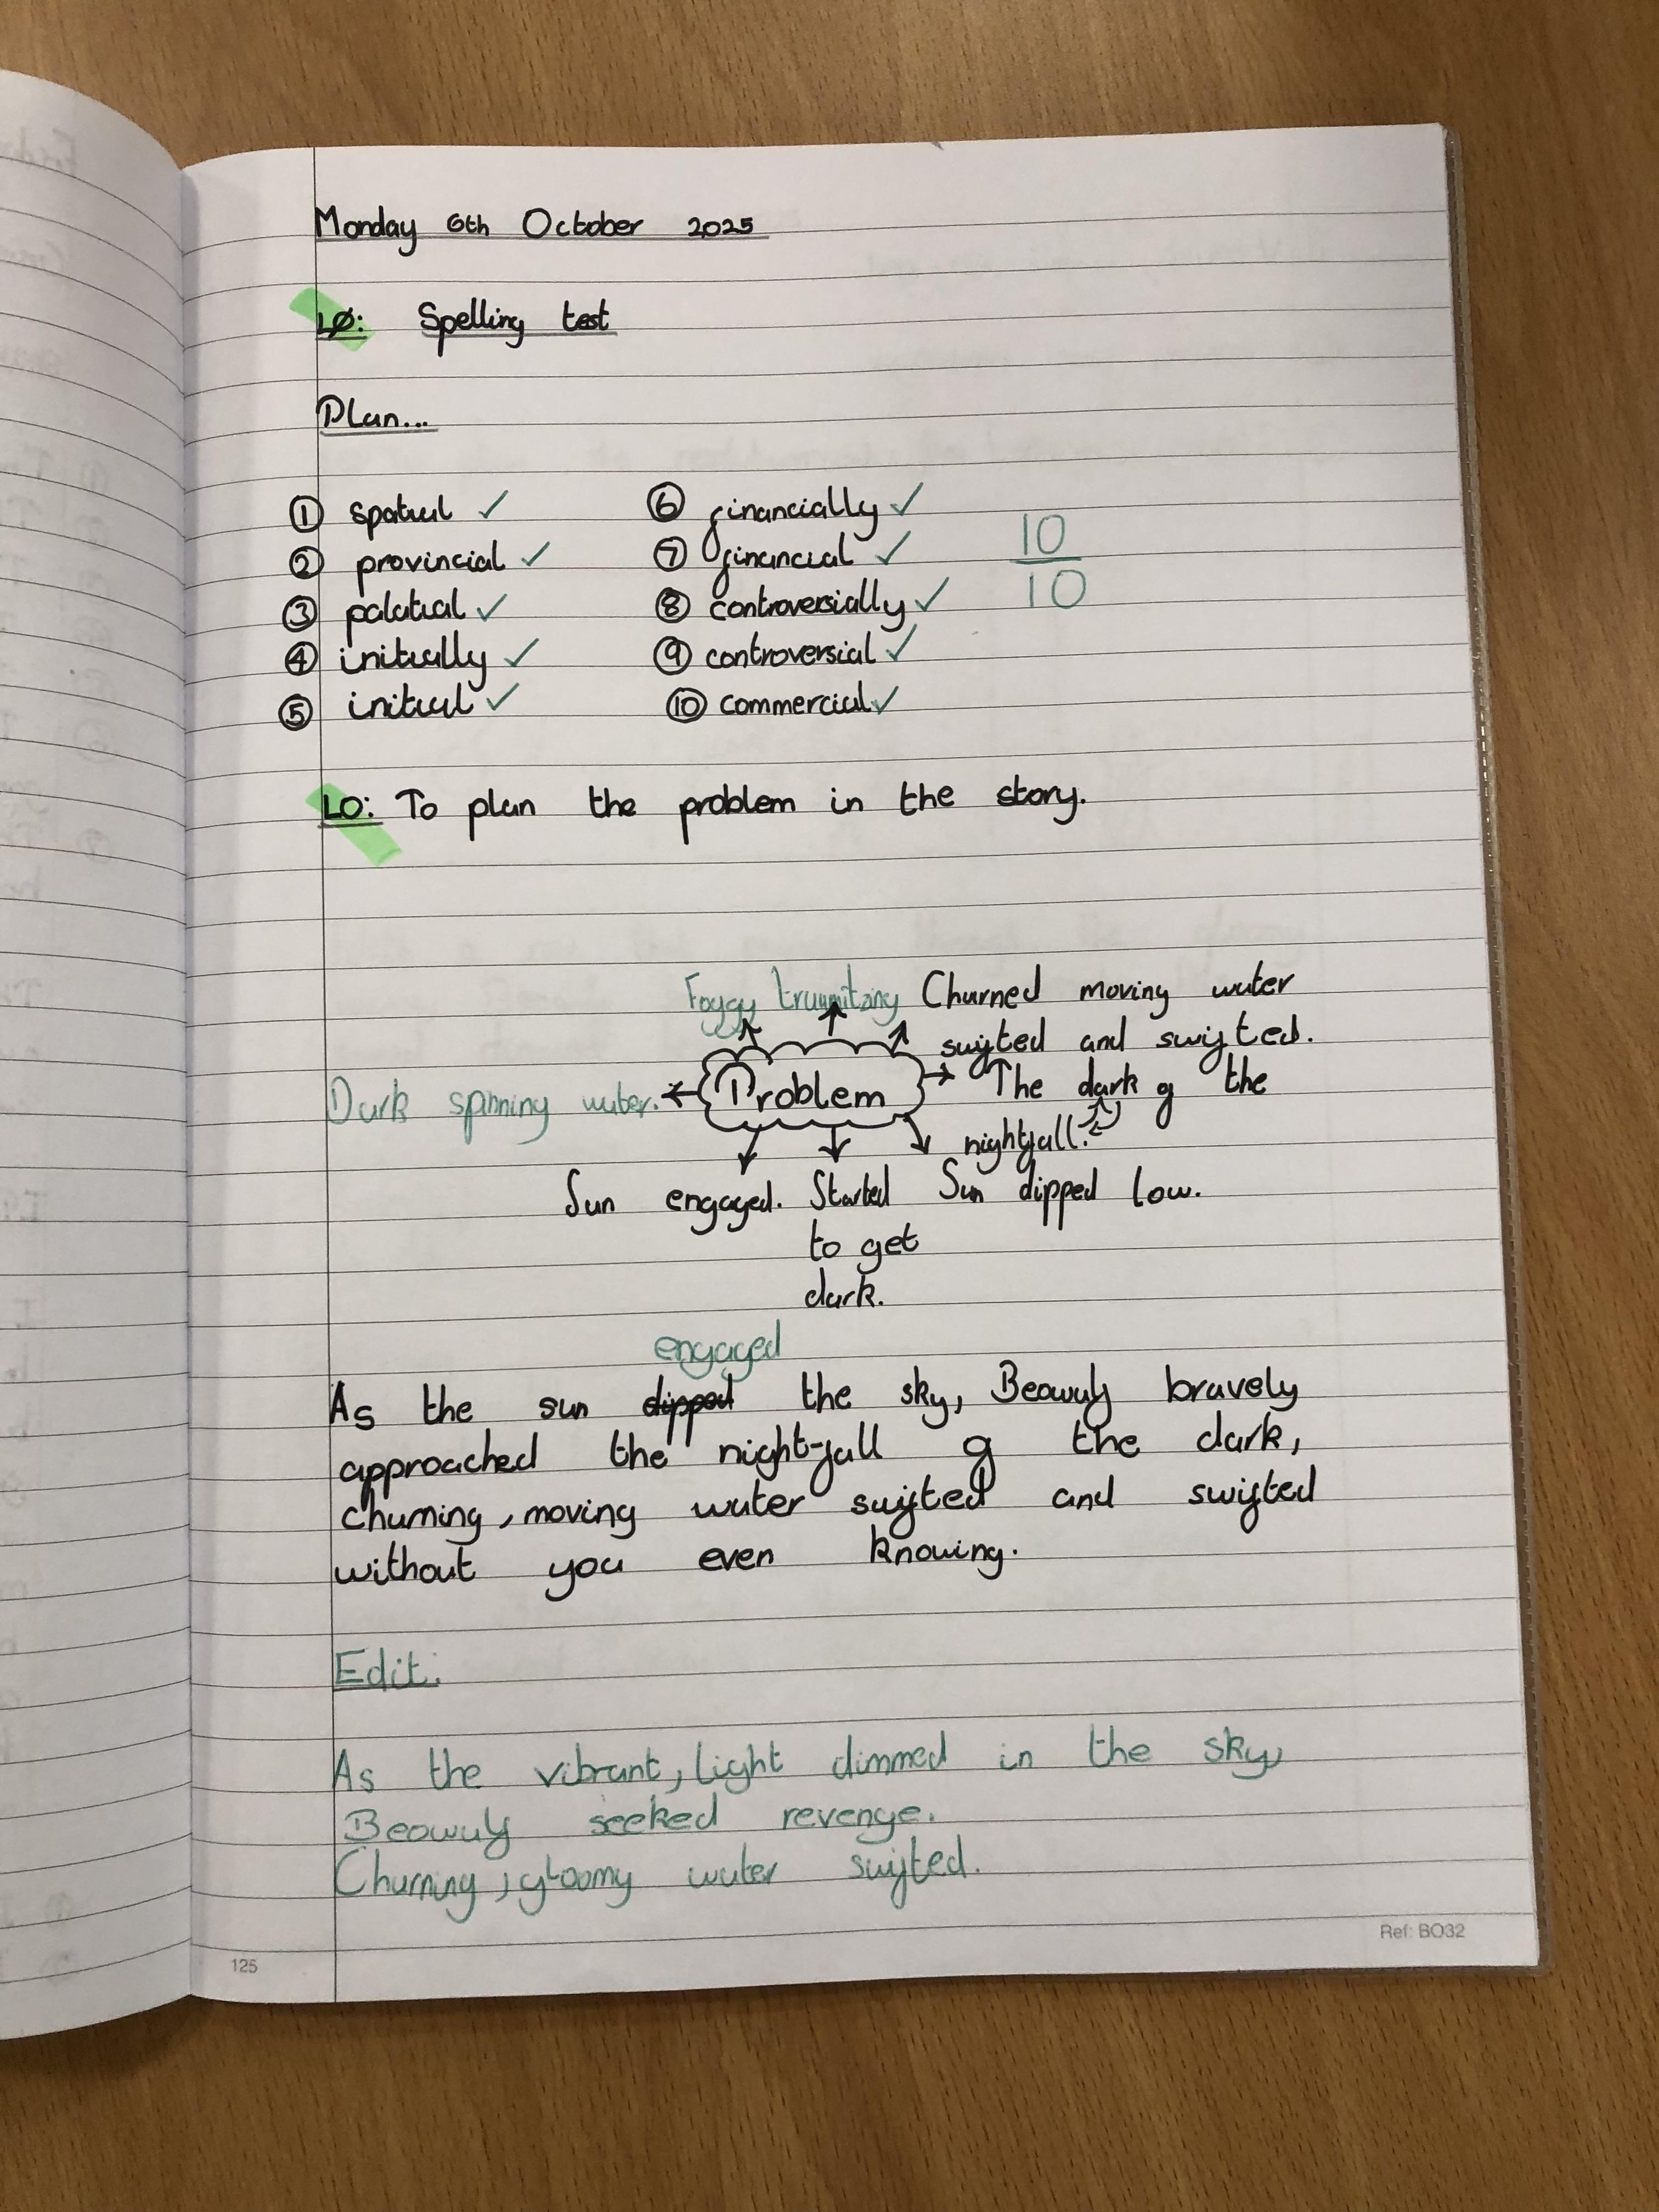 Monday 6th October 2025
LO: Spelling test
Plan...
① spatial ✓ ⑥ financially ✓
② provincial ✓ ⑦ financial ✓
③ palatial ✓ ⑧ controversially ✓
④ initially ✓ ⑨ controversial ✓
⑤ initial ✓ ⑩ commercial ✓
10
10
LO: To plan the problem in the story.
Foggy Churned moving water
swifted and swifted.
Dark spinning water. Problem The dark of the
nightfall.
Sun engaged. Started Sun dipped low.
to get
dark.
engaged
As the sun dipped the sky, Beowulf bravely
approached the night-fall of the dark,
churning, moving water swifted and swifted
without you even knowing.
Edit:
As the vibrant, light dimmed in the sky,
Beowulf seeked revenge.
Churning, gloomy water swifted.
Ref: BO32
125